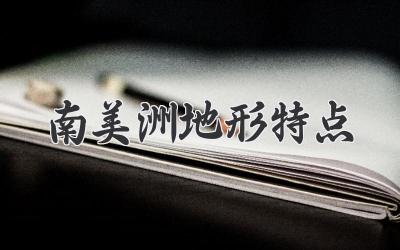 南美洲地形特点